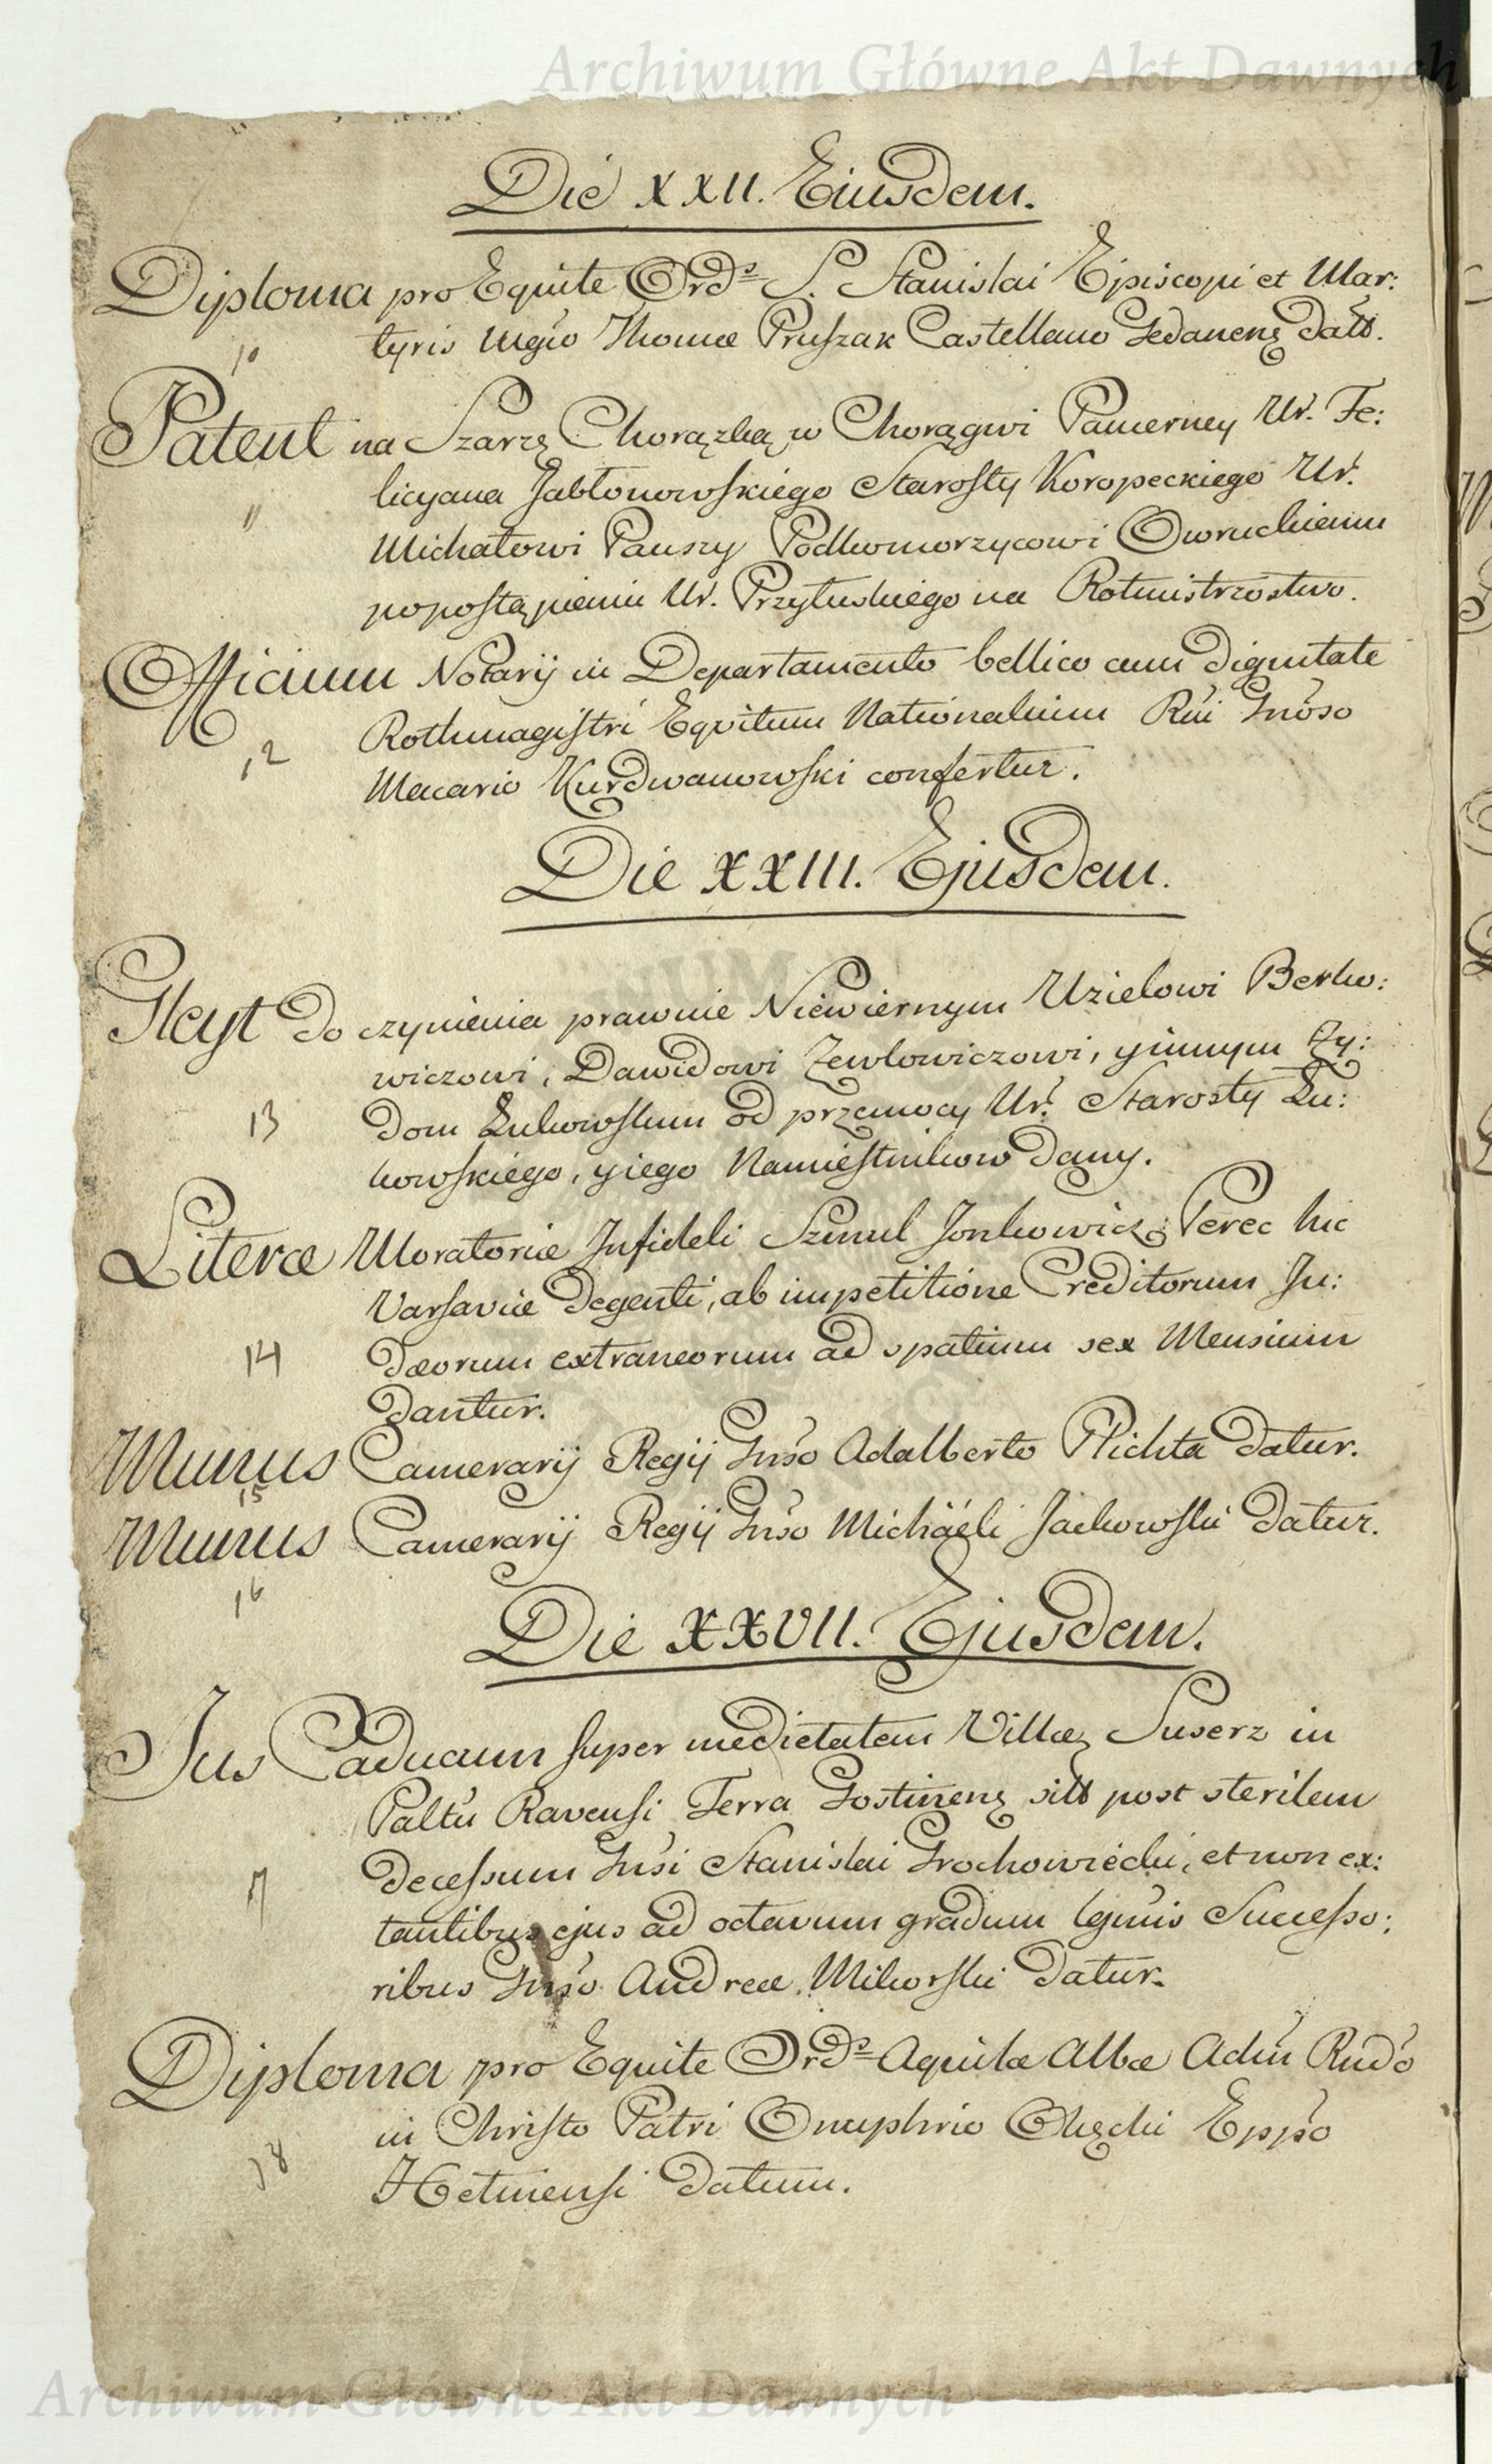 Archiwum Główne Akt Dawnych
Die XXII. Eiusdem.
Diploma pro Equite Ord̄s S. Stanislai Episcopi et Mar:
tyris Mgĩo Thomæ Pruszak Castellano Gedanenș datt.
10
Patent na Szarzę Chorązką w Chorągwi Pancerney Ur. Fe:
licyana Jabłonowskiego Starosty Koropeckiego Ur.
11
Michałowi Pauszy Podkomorzycowi Owruckiemu
popostąpieniu Ur. Przyłuskiego na Rotmistrzostwo.
Officium Notarij in Departamento bellico cum dignitate
Rothmagistri Equitum Nationalium Rńi Gnōso
12
Macario Kurdwanowski confertur.
Die XXIII. Ejusdem.
Gleyt do czynienia prawnie Niewiernym Uzielowi Berko:
wiczowi, Dawidowi Zewlowiczowi, yinnym Zy:
13
dom Łukowskim od przemocy Ur. Starosty Łu:
kowskiego, yiego Namiestnikow dany.
Literæ Moratoriæ Infideli Szmul Jonkowicz Perec hic
Varsaviæ degenti, ab impetitione Creditorum Ju:
14
dæorum extraneorum ad spatium sex Mensium
dantur.
Munus Camerarij Regij Gnśo Adalberto Plichta datur.
15
Munus Camerarij Regij Gnśo Michaëli Jackowski datur.
16
Die XXVII. Ejusdem.
Jus Caducum super medietatem Villæ Suserz in
Paltũ Ravensi Terra Gostinenș sitt post sterilem
17
decessum Gnśi Stanislai Grochowiecki, et non ex:
tantibus ejus ad octavum gradum lgmis Successo:
ribus Gnśo Andreæ Mikorski datur.
Diploma pro Equite Ord̄s Aquilæ Albæ Adm̃ Rńdo
in Christo Patri Onuphrio Okęcki Eppo
18
Hetmensi datum.
Archiwum Główne Akt Dawnych